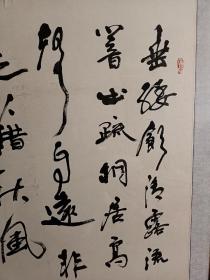 垂緌飲清露流
響出疏桐居高
聲自遠非
是藉秋風